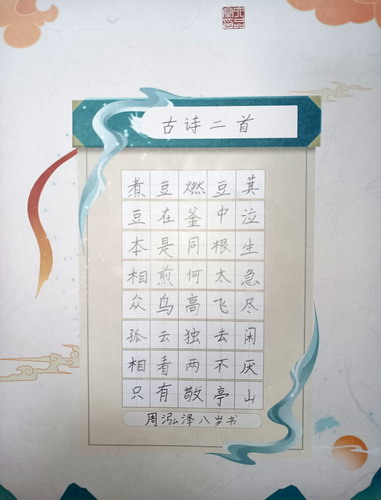 古诗二首
煮豆燃豆萁
豆在釜中泣
本是同根生
相煎何太急
众鸟高飞尽
孤云独去闲
相看两不厌
只有敬亭山
周泓泽八岁书